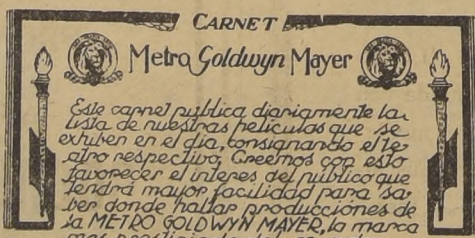 CARNET
Metro Goldwyn Mayer
Este carnet publica diariamente la
lista de nuestras películas que se
exhiben en el día, consignando el te-
atro respectivo, Creemos con esto
favorecer el interes del público que
tendrá mayor facilidad para sa-
ber donde hallar producciones de
la METRO GOLDWYN MAYER, la marca
mas